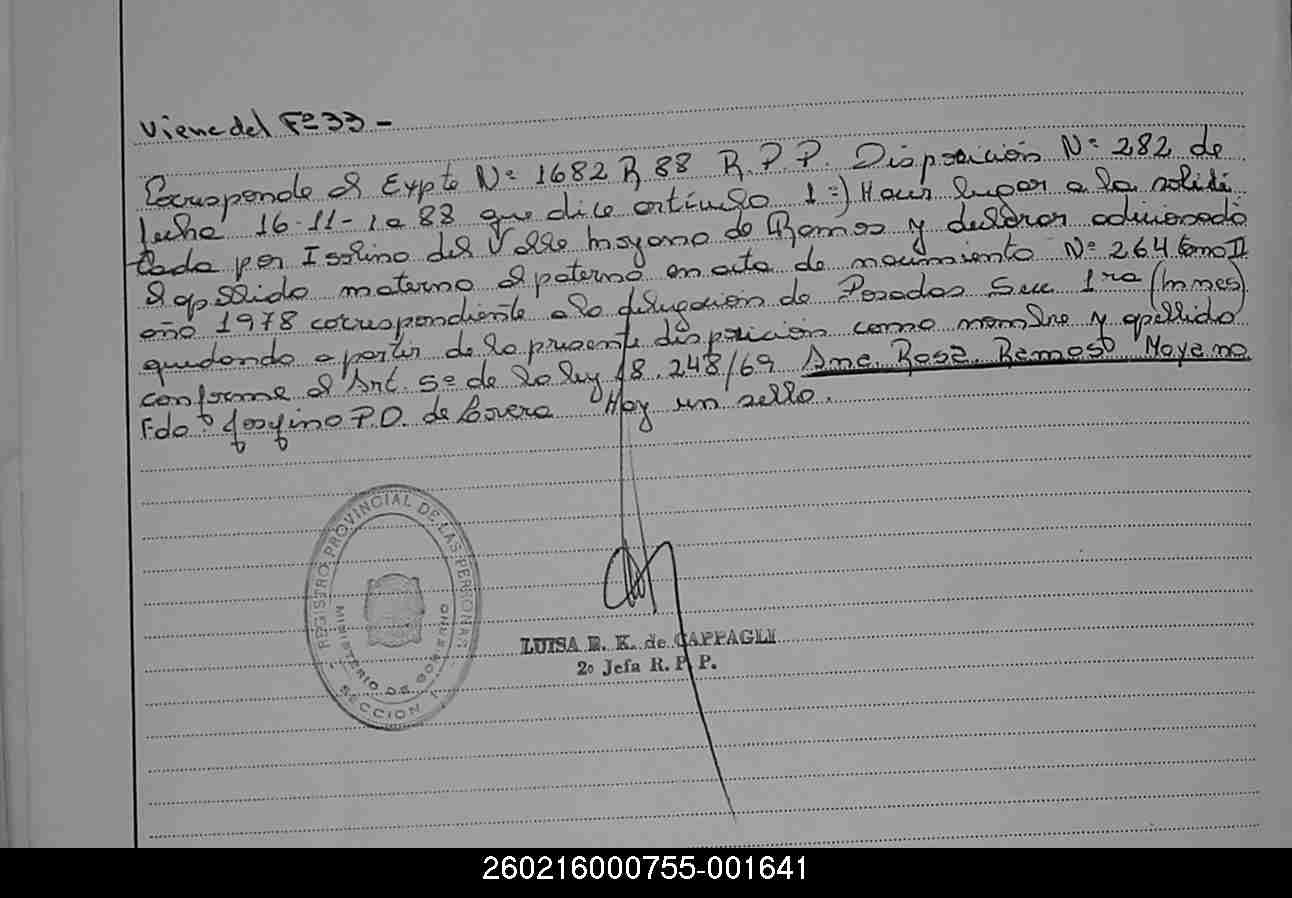 Viene del Fº 33 -
Corresponde al Expte Nº 1682 R 88 R.P.P. Disposición Nº 282 de
fecha 16-11-1988 que dice artículo 1º) Hacer lugar a lo solici
tado por Isolina del Valle Moyano de Ramos y declarar adicionado
al apellido materno al paterno en acta de nacimiento Nº 264 tomo II
año 1978 correspondiente a la delegación de Posadas Secc 1ra (Mnes)
quedando a partir de la presente disposición como nombre y apellido
conforme al Art. 5º de la ley 18.248/69 Ana Rosa Ramos Moyano
Fdo: P.D. de Hay un sello.
REGISTRO PROVINCIAL DE LAS PERSONAS
MINISTERIO DE GOBIERNO
SECCION
LUISA E. K. de CAPPAGLI
2º Jefa R. P. P.
260216000755-001641